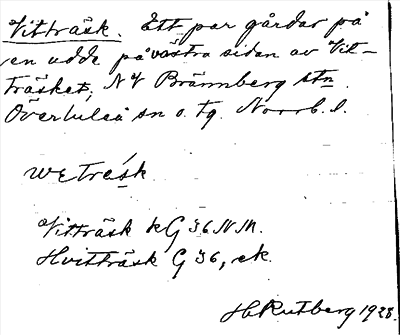 Vitträsk. Ett par gårdar på
en udde på västra sidan av Vit-
träsket, NV Brännberg stn.
Överluleå sn o. tg. Norrb. l.
wetresk
Vitträsk kG 36 NM.
Hvitträsk G 36, ek.
H Rutberg 1928.